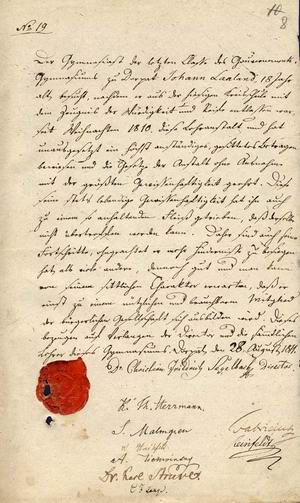 No 19
8
Der Gymnasiast der letzten Classe des Gouvernements-
Gymnasiums zu Dorpat Johann Laaland, 18 Jahr
alt, besucht, nachdem er aus der hiesigen Kreisschule mit
dem Zeugniß der Würdigkeit und Reife entlassen war
seit Weihnachten 1810, diese Lehranstalt, und hat
unausgesetzt ein höchst anständiges, gesittetes Betragen
bewiesen und die Gesetze der Anstalt ohne Ausnahme
mit der größten Gewissenhaftigkeit geehrt. Diese
seine stets lebendige Gewissenhaftigkeit hat ihn auch
zu einem so anhaltenden Fleiß getrieben, daß derselbe
nicht übertroffen werden kann. Daher sind auch seine
Fortschritte, ungeachtet er mehr Hindernisse zu besiegen
hat als viele andere, dennoch gut und man kann
von seinem sittlichen Charakter erwarten, daß er
einst zu einem nützlichen und brauchbaren Mitglied
der bürgerlichen Gesellschaft sich ausbilden wird. Dieses
bezeugen auf Verlangen der Director und die sämtlichen
Lehrer dieses Gymnasiums. Dorpat, den 28 August
Dr. Christian Director
K. Th. Herrmann.
S. Malmgren
Dr. Karl Struve